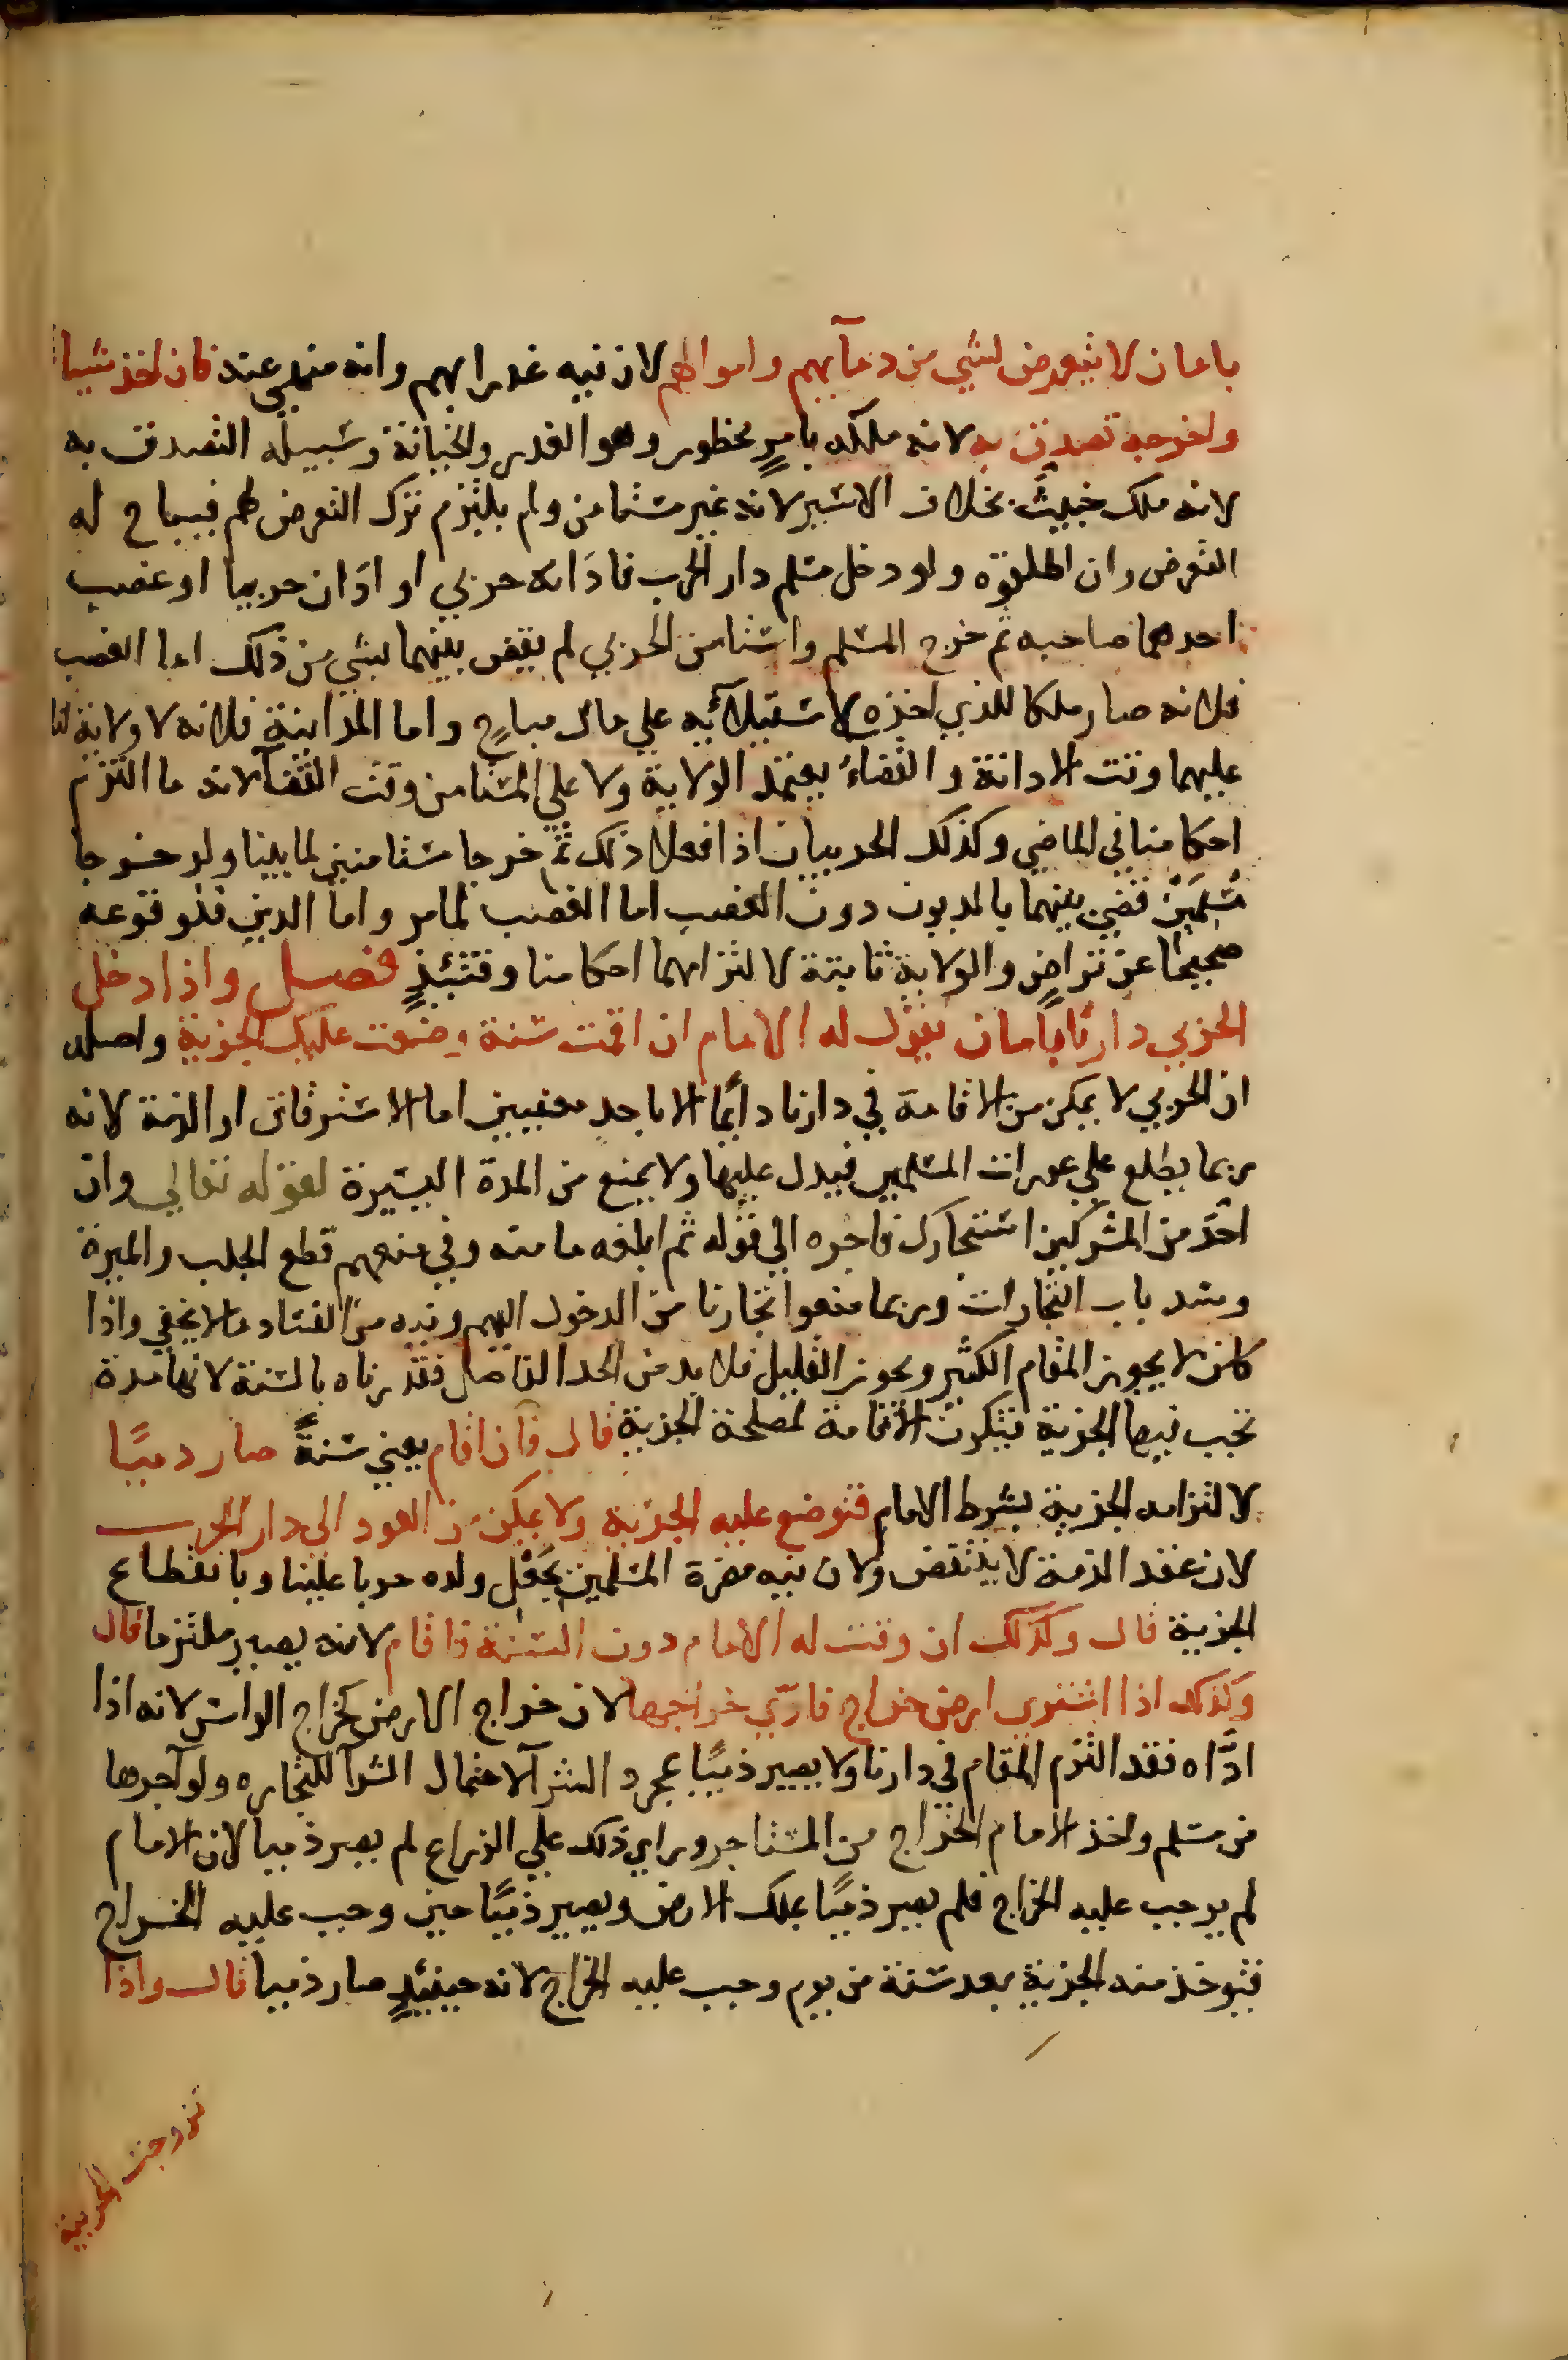 بامان لا يتعرض لشي من دمآيهم واموالهم لان فيه غدرا بهم وانه منهي عنه فان اخذ شيا
واخرجه تصدق به لانه ملكه بامرٍ محظور وهو الغدر والخيانة وسبيله التصدق به
لانه ملك خبيث بخلاف الاسير لانه غير مستامن ولم يلتزم ترك التعرض لهم فيباح له
التعرض وان اطلقوه ولو دخل مسلم دار الحرب فادَانه حربي او ادَان حربيا او غصب
احدهما صاحبه ثم خرج المسلم واستامن الحربي لم يقض بينهما بشي من ذلك اما الغصب
فلانه صار ملكا للذي اخذه لاستيلآئه علي مال مباح واما المداينة فلانه لا ولاية لنا
عليهما وقت الادانة والقضاءُ يعتمد الولاية ولا علي المستامن وقت القضآ لانه ما التزم
احكامنا في الماضي وكذلك الحربيان اذا فعلا ذلك ثم خرجا مستامنين لما بينا ولو خرجا
مسلمَيْن قضي بينهما بالديون دون الغصب اما الغصب لما مر واما الدين فلوقوعه
صحيحًا عن تراضٍ والولاية ثابتة لالتزامهما احكامنا وقتئذٍ فصل واذا دخل
الحربي دارنا بامان يقول له الامام ان اقمت سنة وضعت عليك الجزية واصله
ان الحربي لا يمكن من الاقامة في دارنا دائمًا الا باحد معنيين اما الاسترقاق او الذمة لانه
ربما يطلع علي عورات المسلمين فيدل عليها ولا يمنع من المدة اليسيرة لقوله تعالي وان
احَد من المشركين استجارك فاجره الي قوله ثم ابلغه مامنه وفي منعهم قطع الجلب والميرة
وسد باب التجارات وربما منعوا تجارنا من الدخول اليهم وفيه من الفساد ما لا يخفي واذا
كان لا يجوز المقام الكثير ويجوز القليل فلا بد من الحد الفاصل فقدرناه بالسنة لانها مدة
تجب فيها الجزية فتكون الاقامة لمصلحة الجزية قال فان اقام يعني سنةً صار دميًا
لالتزامه الجزية بشرط الامام فتوضع عليه الجزية ولا يمكن من العود الى دار الحرب
لان عقد الذمة لا ينتقض ولان فيه مضرة المسلمين بجَعْل ولده حربا علينا وبانقطاع
الجزية قال وكذلك ان وقت له الامام دون السنة فاقام لانه يصير ملتزما قال
وكذلك اذا اشترى ارض خراج فادّي خراجها لان خراج الارض كخراج الراس لانه اذا
ادَّاه فقد التزم المقام في دارنا ولا يصير ذميًا بمجرد الشرآ لاحتمال الشرآ للتجاره ولو آجرها
من مسلم واخذ الامام الخراج من المستاجر وراي ذلك علي الزراع لم يصر ذميا لان الامام
لم يوجب عليه الخراج فلم يصر ذميًا بملك الارض ويصير ذميًا حين وجب عليه الخراج
فتوخذ منه الجزية بعد سنة من يوم وجب عليه الخراج لانه حينئذٍ صار ذميا قال واذا
تزوجت الحربية